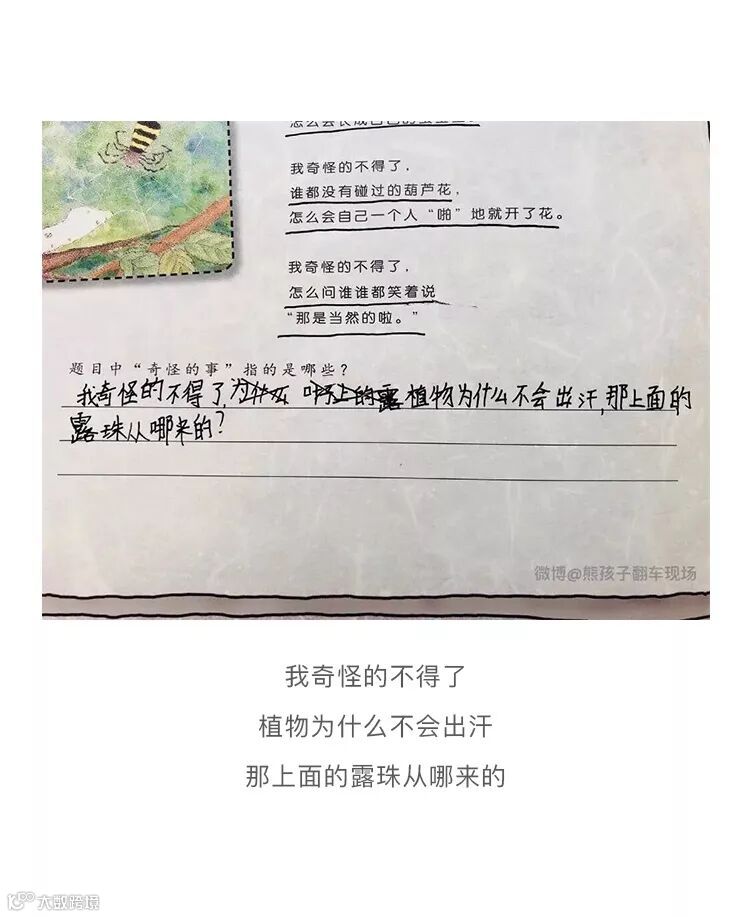 我奇怪的不得了，
谁都没有碰过的葫芦花，
怎么会自己一个人“啪”地就开了花。
我奇怪的不得了，
怎么问谁谁都笑着说
“那是当然的啦。”
题目中“奇怪的事”指的是哪些？
我奇怪的不得了，为什么 叶子上的露植物为什么不会出汗，那上面的
露珠从哪来的？
微博@熊孩子翻车现场
我奇怪的不得了
植物为什么不会出汗
那上面的露珠从哪来的
大数跨境